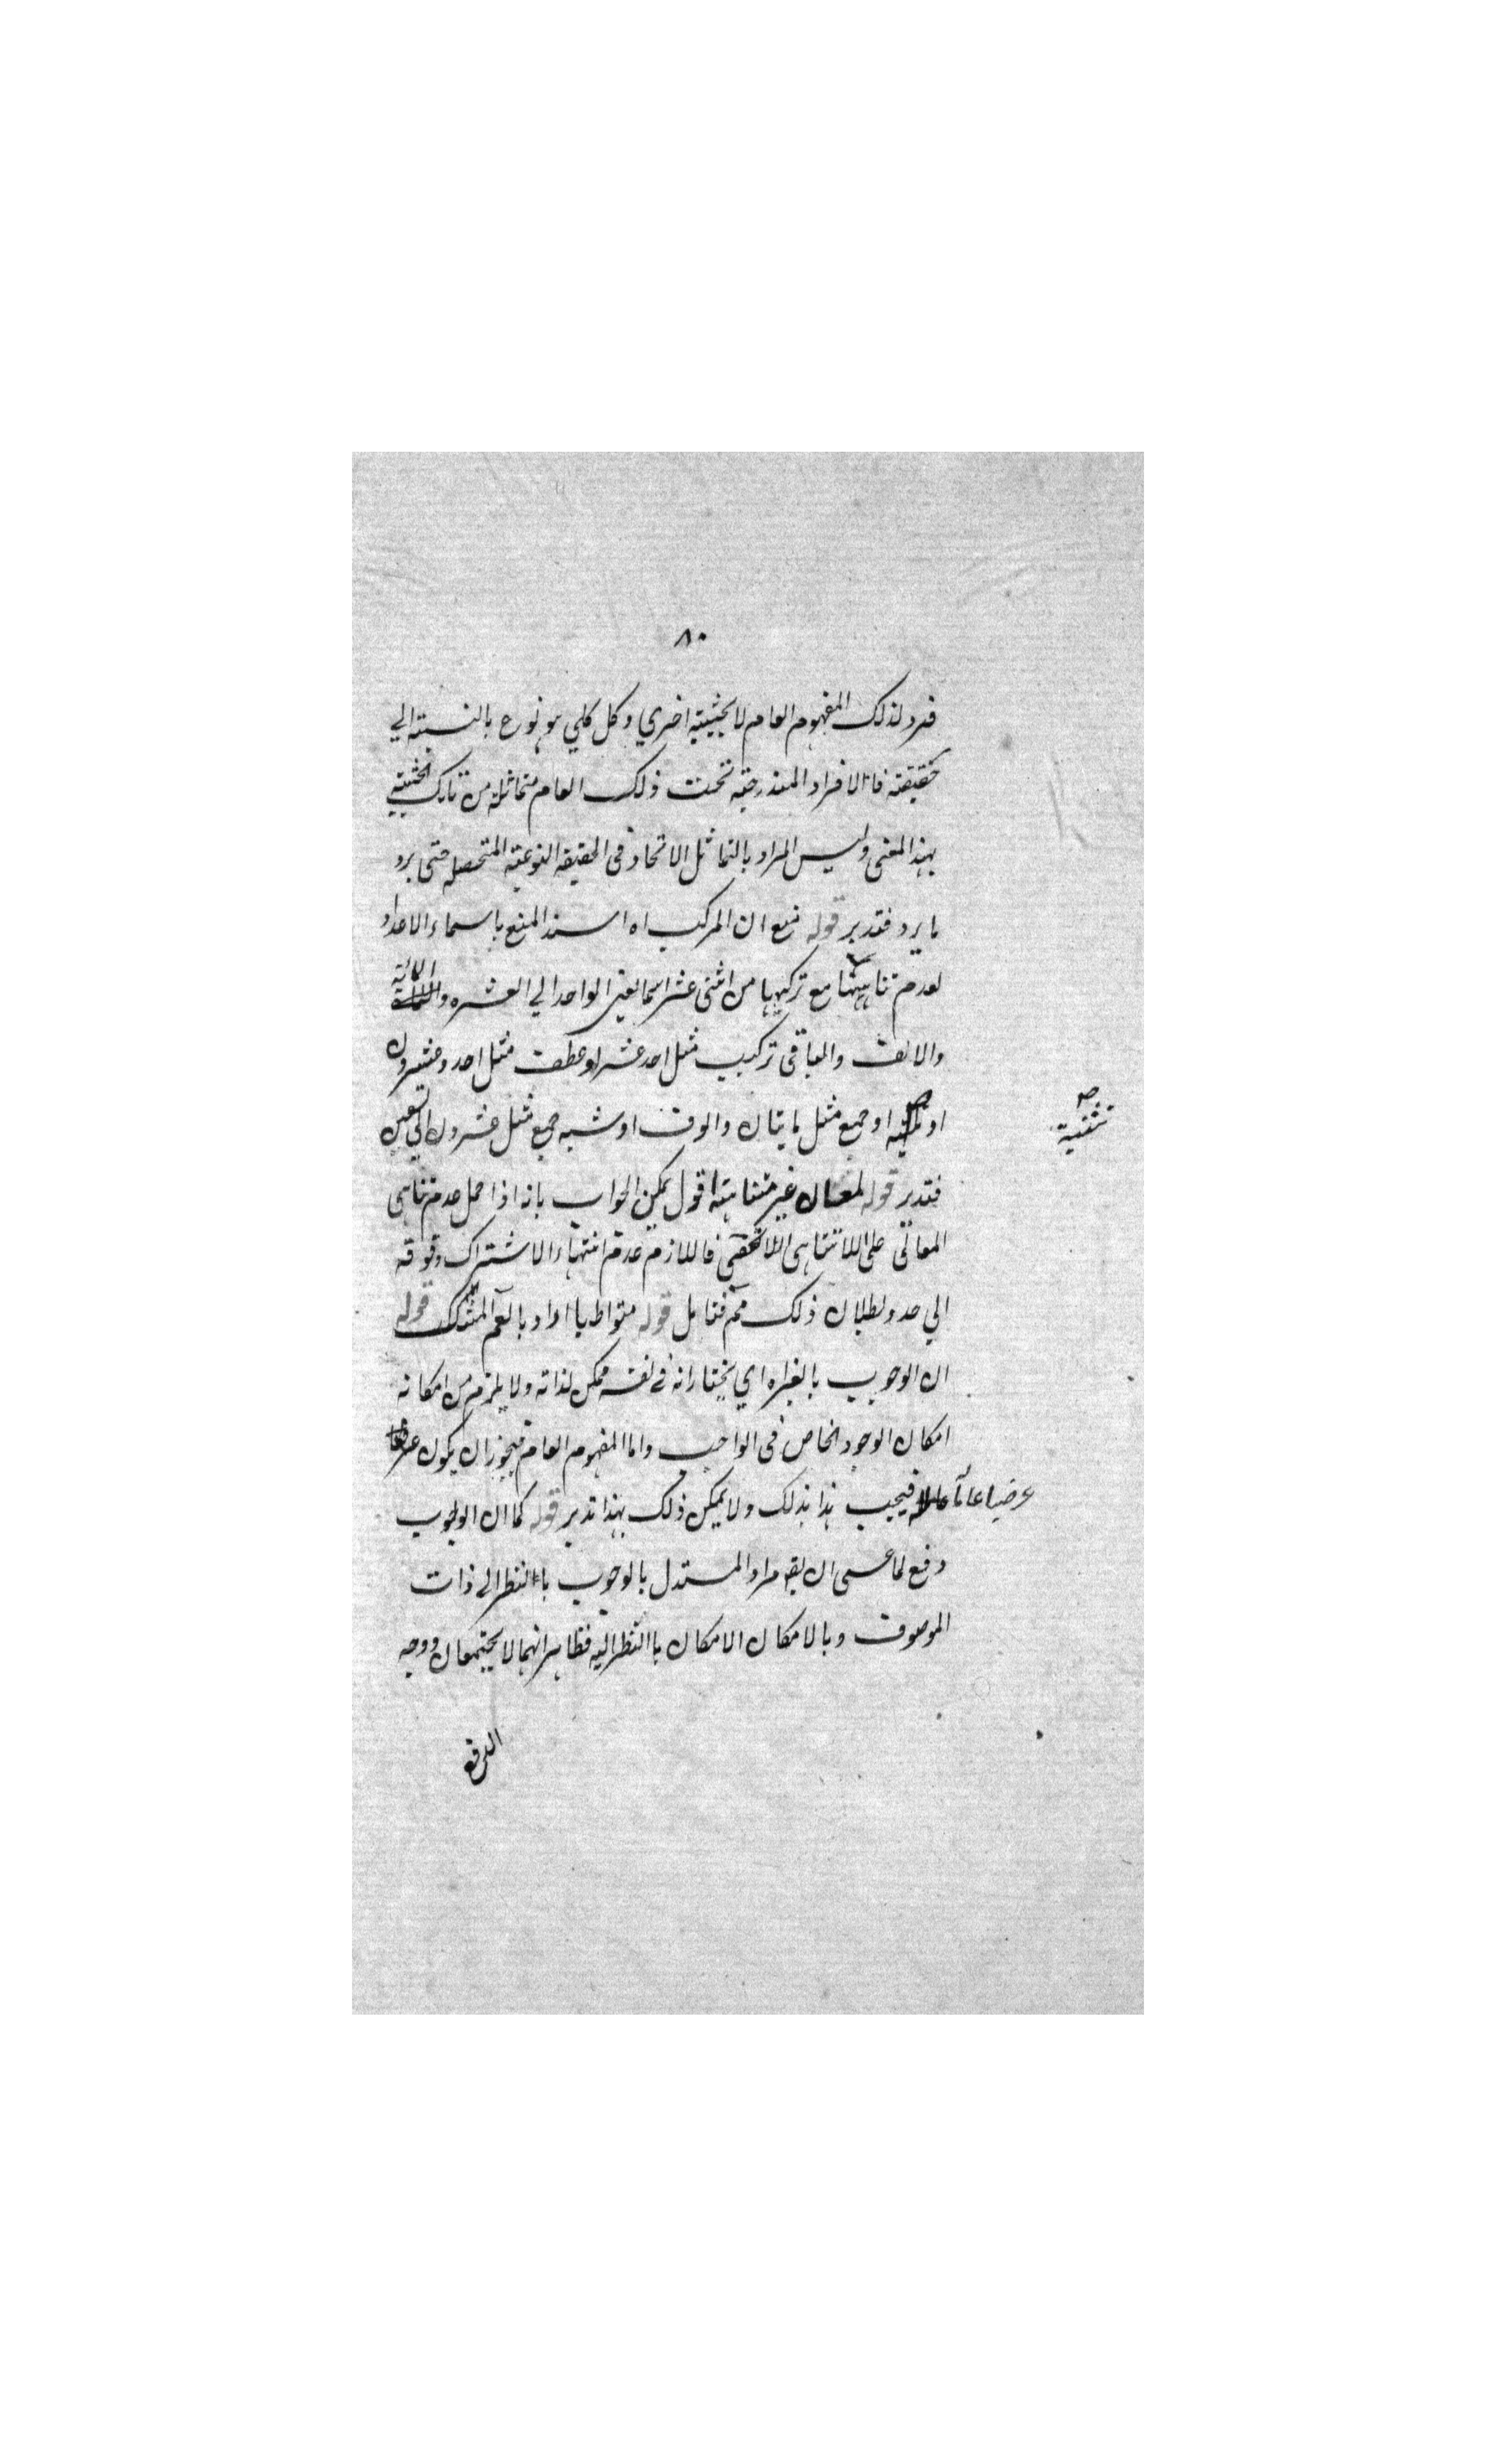 ٨٠
فرد لذلك المفهوم العام لا بحيثية اخري وكل كلي هو نوع بالنسبة الي
حقيقته فان الافراد المندرجة تحت ذلك العام متماثلة من تلك الحيثية
بهذا المعنى وليس المراد بالتماثل الاتحاد فى الحقيقة النوعية المتحصلة حتى يرد
ما يرد فتدبر قوله نمنع ان المركب اه اسند المنع باسماء الاعداد
لعدم تناهيها مع تركيبها من اثنى عشر اسما يعنى الواحد الي العشره والمائة
والالف والباقى تركيب مثل احد عشر او عطف مثل احد وعشرون
او تثنية او جمع مثل مايتان والوف او شبه جمع مثل عشرون الي تسعين
تثنية صح
فتدبر قوله لمعان غير متناهية اقول يمكن الجواب بانه اذا حمل عدم تناهى
المعانى على اللاتناهى اللاتقفى فاللازم عدم انتهاء الاشتراك وقوفه
الي حد وبطلان ذلك مم فتامل قوله متواطيا اراد بالعم المشكك قوله
ان الوجوب بالغير اه اي يختار انه فى نفسه ممكن لذاته ولا يلزم من امكانه
امكان الوجود الخاص فى الواجب واما المفهوم العام فيجوز ان يكون
عرضيا عاما فيجب هذا بذلك ولا يمكن ذلك بهذا تدبر قوله كما ان الوجوب
دفع لما عسى ان يقو مراد المستدل بالوجوب باالنظر الى ذات
الموصوف وبالامكان الامكان باالنظر اليه فظاهر انهما لا يجتمعان ووجه
الدفع